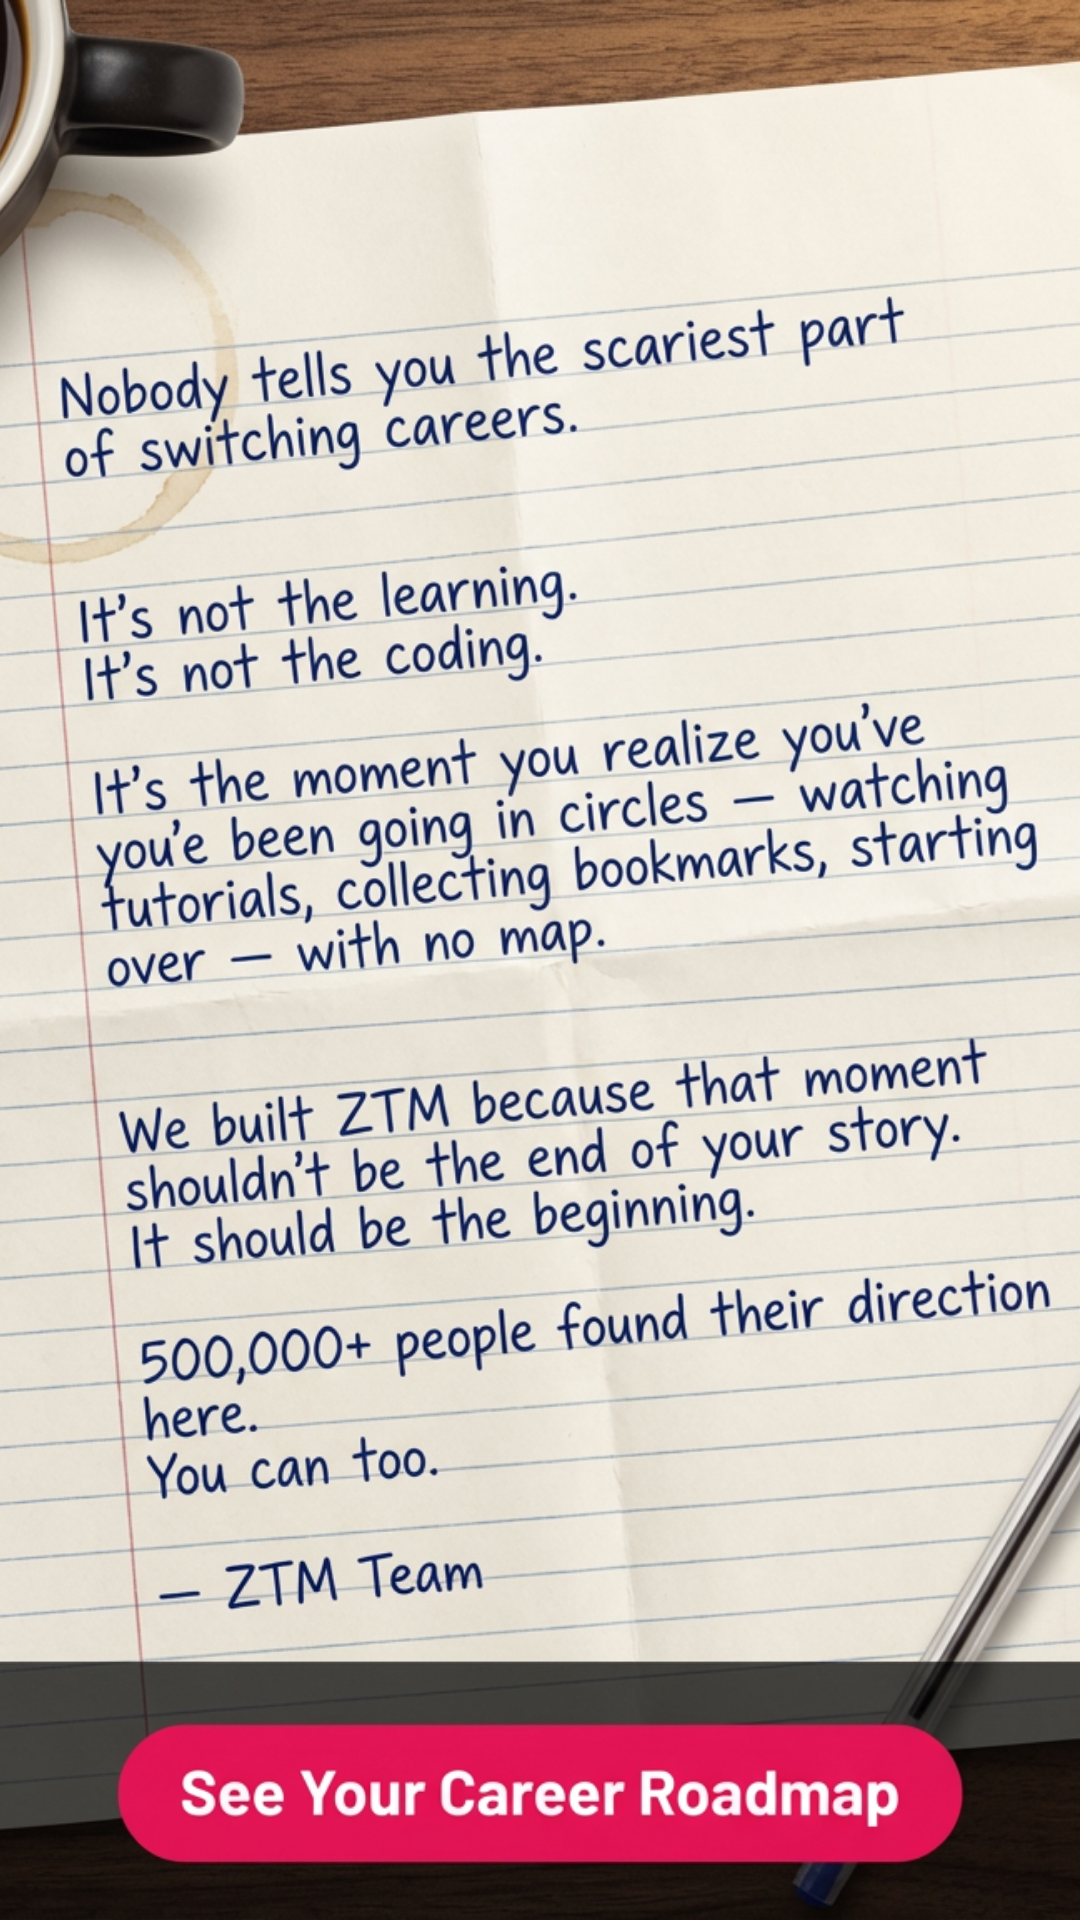 Nobody tells you the scariest part
of switching careers.
It's not the learning.
It's not the coding.
It's the moment you realize you've
you'e been going in circles — watching
tutorials, collecting bookmarks, starting
over — with no map.
We built ZTM because that moment
shouldn't be the end of your story.
It should be the beginning.
500,000+ people found their direction
here.
You can too.
— ZTM Team
See Your Career Roadmap